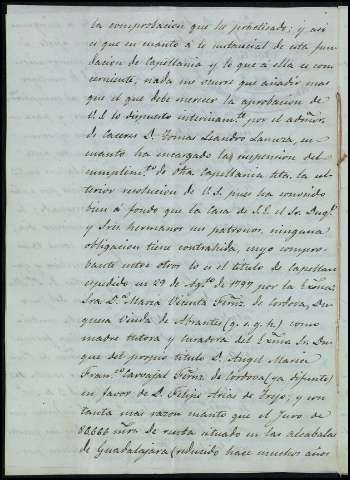 la comprobacion que he practicado; y asi
es que en cuanto á lo sustancial de esta fun-
dacion de Capellania y lo que á ella es con-
cerniente, nada me ocurre que añadir mas
que el que debe merecer la aprobacion de
V.S. lo dispuesto interinam.te por el admor.
de Caceres D. Tomas Leandro Lanuza, en
cuanto ha encargado la suspension del
cumplim.to de dha Capellania hta. la ul-
terior resolucion de V.S. pues ha conocido
bien á fondo que la Casa de S.E. el Sr. Duq.e
y Sres hermanos sus patronos, ninguna
obligacion tiene contrahida, cuyo compro-
bante entre otros lo es el titulo de Capellan
espedido en 29 de Ag.to de 1797 por la Exma
Sra D.a Maria Vicenta Fernz. de Cordova, Du-
quesa Viuda de Abrantes (q. s. g. h.) como
madre tutora y curadora del Exmo Sr. Du-
que del propio titulo D. Angel Maria
Fran.co Carvajal Fernz. de Cordova (ya difunto)
en favor de D. Felipe Arias de Trejo; y con
tanta mas razon cuanto que el Juro de
80,666 mrs. de renta situado en las alcabalas
de Guadalajara (reducido hace muchos años